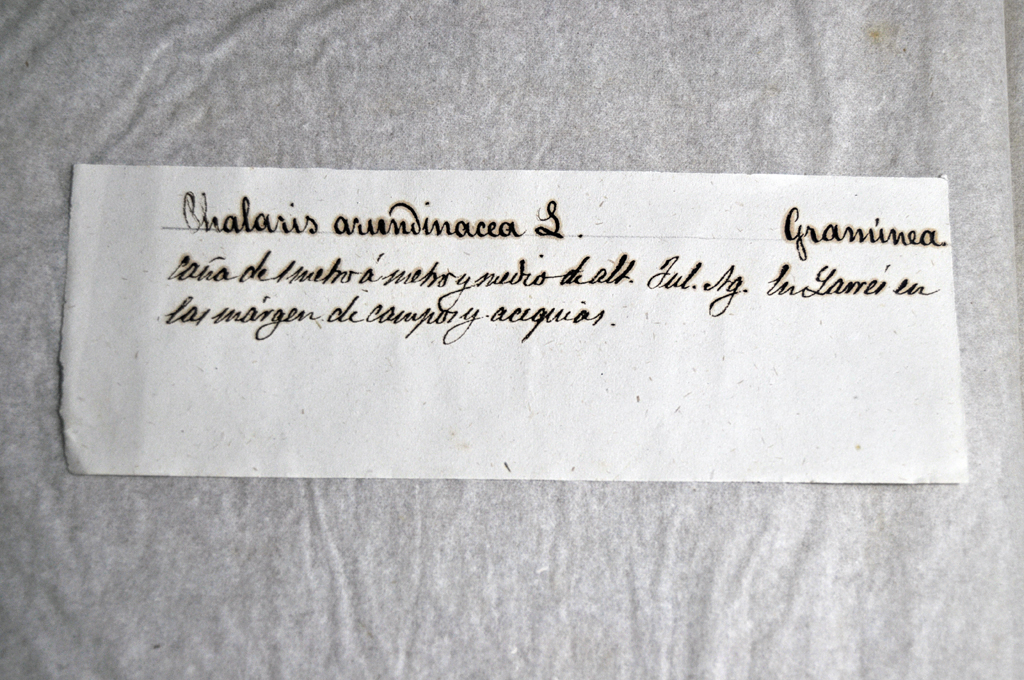 Phalaris arundinacea L. Gramínea.
caña de 1 metro á metro y medio de alt. Jul. Ag. En Larrés en
las márgen de campos y acequias.